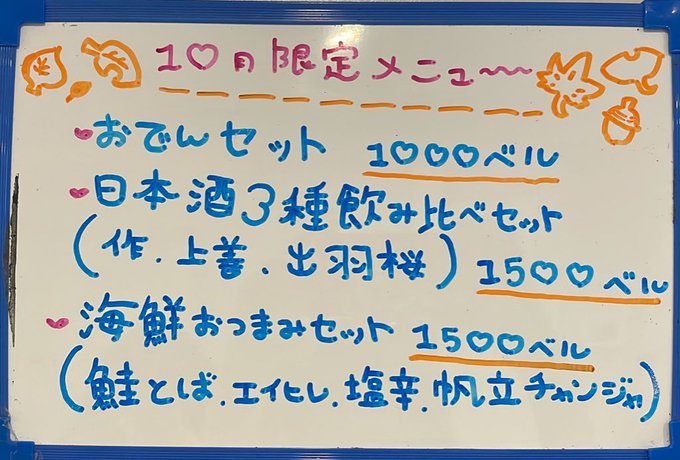 10月限定メニュー〜
おでんセット 1000ベル
日本酒3種飲み比べセット
(作.上善.出羽桜) 1500ベル
海鮮おつまみセット 1500ベル
(鮭とば.エイヒレ.塩辛.帆立チャンジャ)